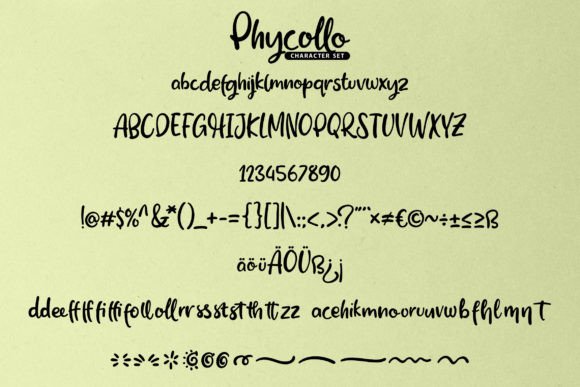 Phycollo
CHARACTER SET
abcdefghijklmnopqrstuvwxyz
ABCDEFGHIJKLMNOPQRSTUVWXYZ
1234567890
!@#$%^&*()_+-={}[]|\:;<,>.?"¨¨×≠€©~÷±≤≥ß
äöüÄÖÜß¿¡
ddeeffffiffifollollrrssststthttzz acehikmnoruuvwbfhlmηT